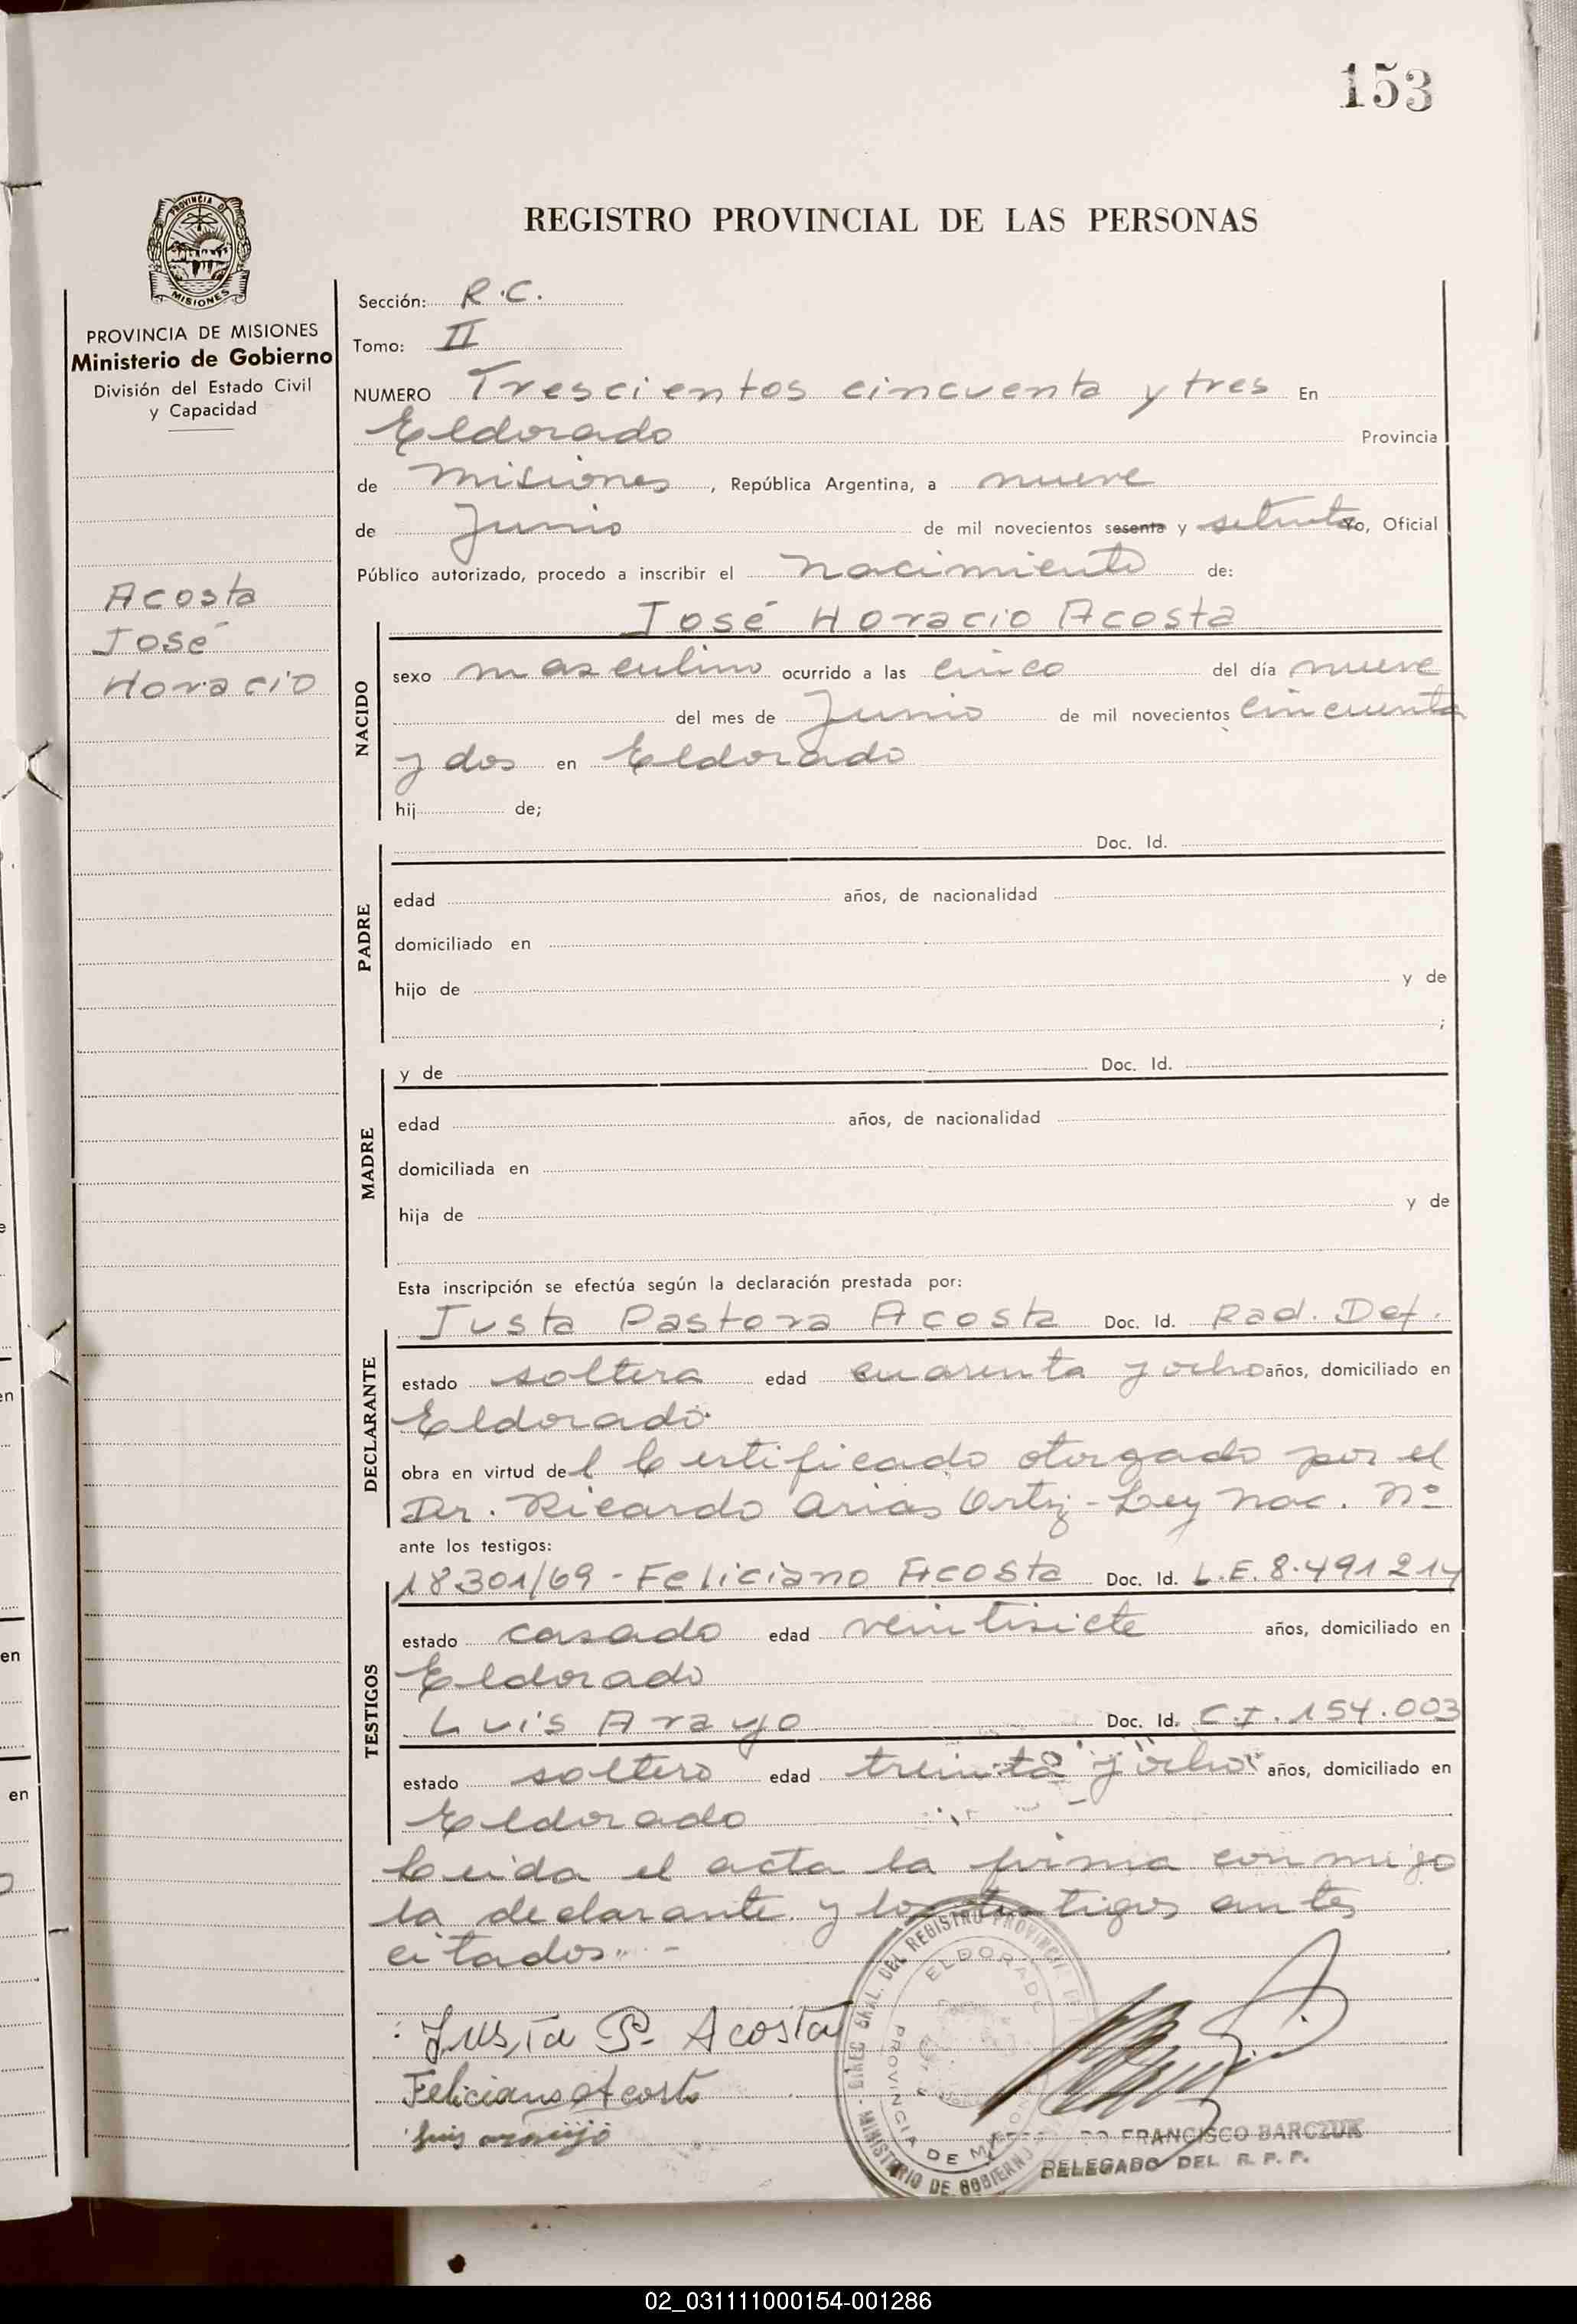 153
REGISTRO PROVINCIAL DE LAS PERSONAS
PROVINCIA DE
MISIONES
PROVINCIA DE MISIONES
Ministerio de Gobierno
División del Estado Civil
y Capacidad
Acosta
José
Horacio
Sección: R.C.
Tomo: II
NUMERO Trescientos cincuenta y tres En
Eldorado Provincia
de Misiones, República Argentina, a nueve
de Junio de mil novecientos sesenta y setenta Yo, Oficial
Público autorizado, procedo a inscribir el nacimiento de:
José Horacio Acosta
NACIDO
sexo masculino ocurrido a las cinco del día nueve
del mes de Junio de mil novecientos cincuenta
y dos en Eldorado
hij de;
PADRE
Doc. Id.
edad años, de nacionalidad
domiciliado en
hijo de y de
;
MADRE
y de Doc. Id.
edad años, de nacionalidad
domiciliada en
hija de y de
Esta inscripción se efectúa según la declaración prestada por:
DECLARANTE
Justa Pastora Acosta Doc. Id. Rad. Def.
estado soltera edad cuarenta y ocho años, domiciliado en
Eldorado.
obra en virtud del Certificado otorgado por el
Dr. Ricardo Arias Ortiz - Ley Nac. Nº
ante los testigos:
TESTIGOS
18301/69 - Feliciano Acosta Doc. Id. L.E. 8.491214
estado casado edad veintisiete años, domiciliado en
Eldorado
Luis Arayo Doc. Id. C.I. 154.003
estado soltero edad treinta y ocho años, domiciliado en
Eldorado
Leida el acta la firma conmigo
la declarante y los testigos antes
citados.. -
Justa P. Acosta
Feliciano Acosta
Luis araujo
DIREC. GRAL. DEL REGISTRO PROVINCIAL DE
ELDORADO
PROVINCIA DE MISIONES
MINISTERIO DE GOBIERNO
FRANCISCO BARCZUK
DELEGADO DEL R. P. P.
02_031111000154-001286